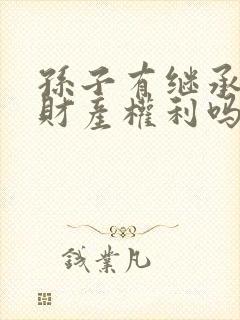 孫子有继承
財産權利吗
錢業凡